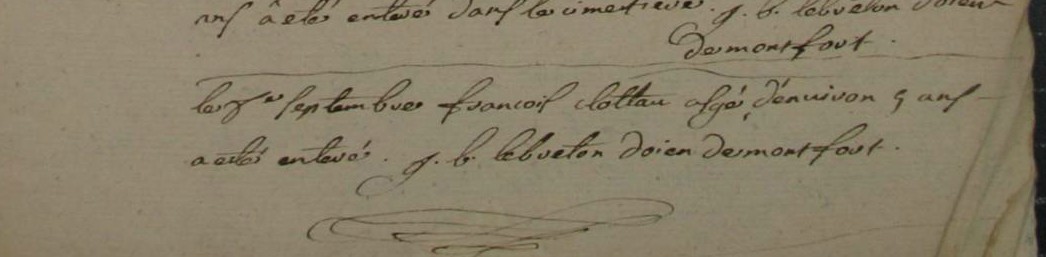 ans a eté enteré dans le cimetiere. j. b. lebreton doien
demontfort.
le 8e septembre francois clottau agé, d'enuiron 5 ans
a eté enteré. j. b. lebreton doien demontfort.